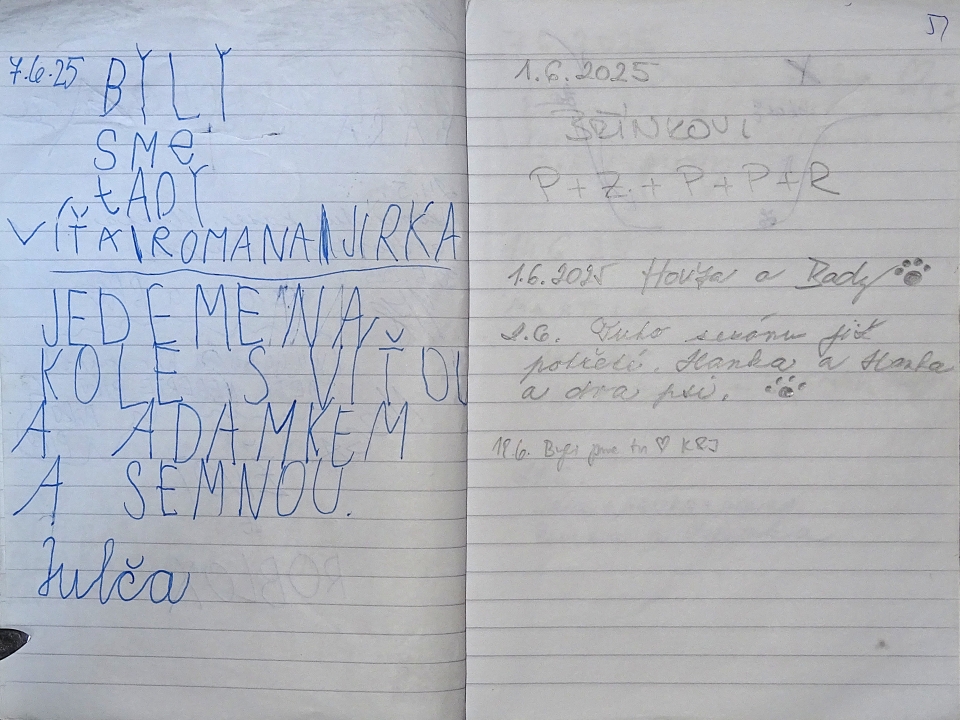 7.6.25 BYLY
SME
tADY
VÍŤA ROMANA JIRKA
JEDEME NA
KOLE S VÍŤOU
A ADAMKEM
A SEMNOU.
Julča
57
1.6.2025
BŘÍNKOVI
P + Z. + P + P + R
1.6.2025 a Bady
2.6. Tuto sezónu již
potřetí. Hanka a Hanka
a dva psi.
18.6. Byli jsme tu ♡ K&J